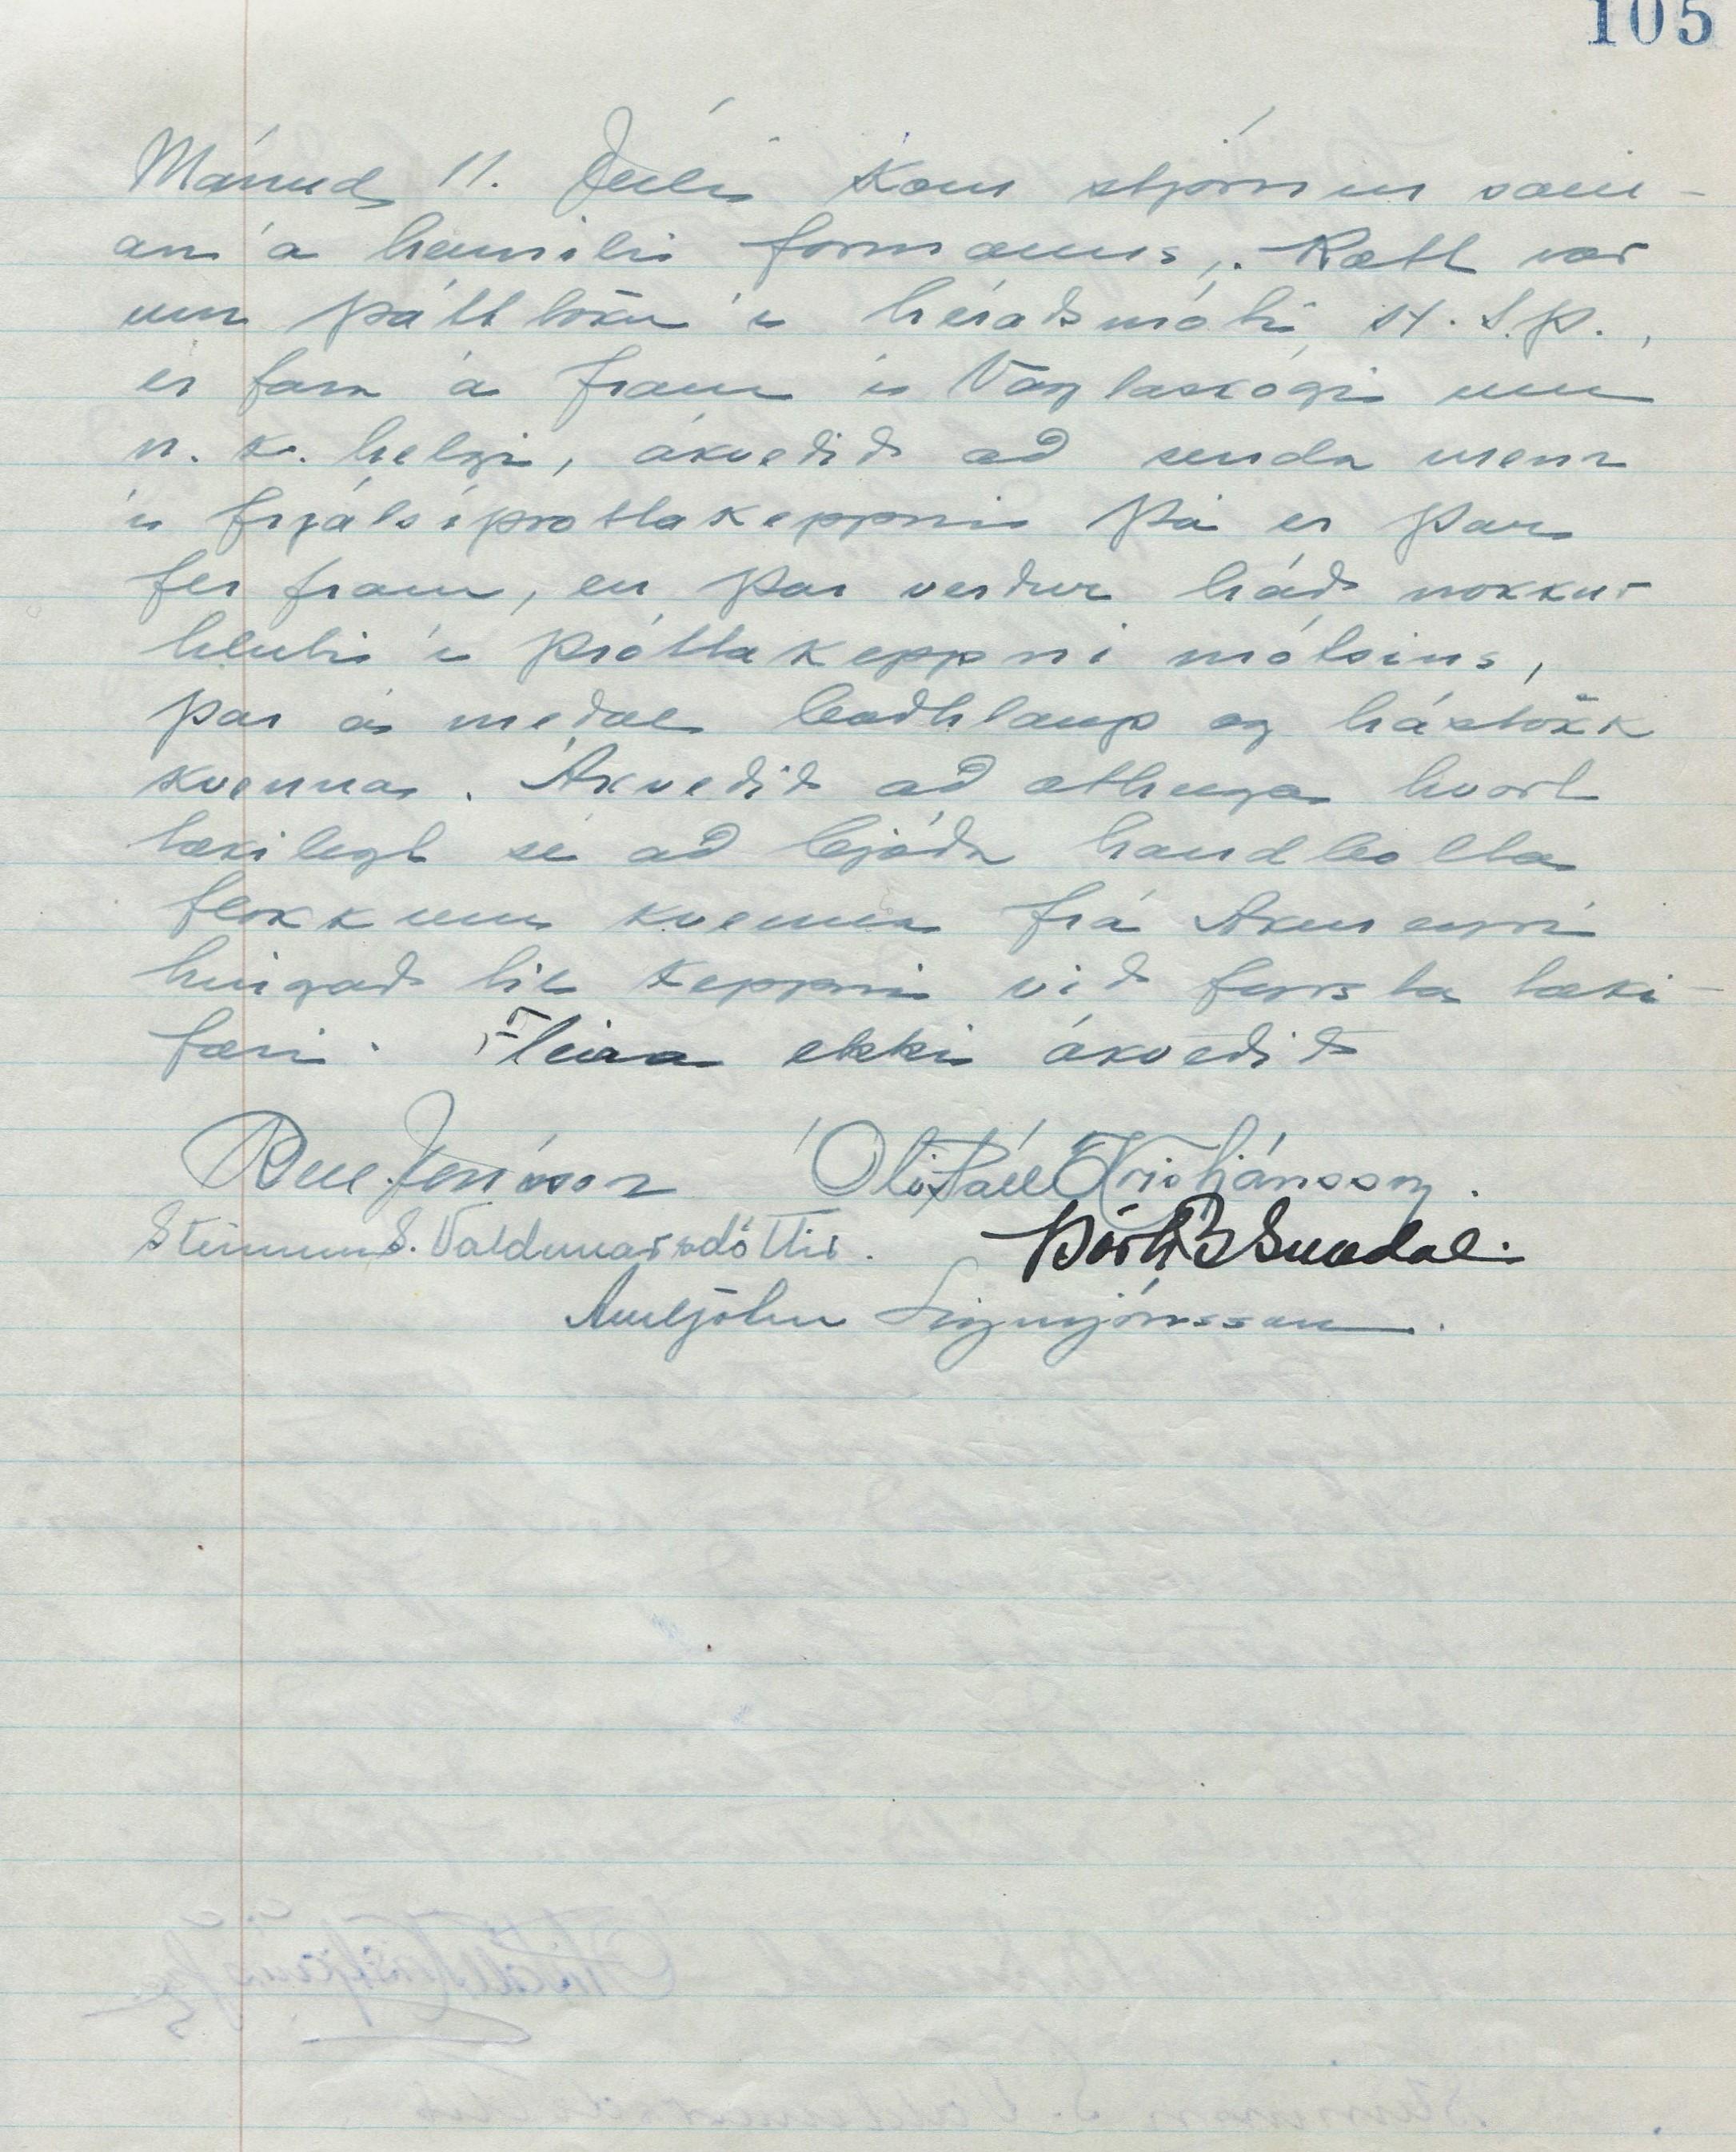 105
Mánud 11. Júlí kom stjórnin sam-
an á heimili formanns. Rætt var
um þátttöku í héraðsmóti H.S.Þ.,
er fara á fram í Vaglaskógi um
n.k. helgi, ákveðið að senda menn
í frjálsíþróttakeppni þá er þar
fer fram, en þar verður háð nokkur
hluti í þróttakeppni mótsins,
þar á meðal boðhlaup og hástökk
kvenna. Ákveðið að athuga hvort
tækilegt sé að bjóða handbolta
flokkum kvenna frá Akureyri
hingað til keppni við fyrsta tæki-
færi. Fleira ekki ákveðið
Óli Páll Kristjánsson.
Steinunn S. Valdimarsdóttir.
Þórh B Snædal.
Aðaljón Sigurjónsson.